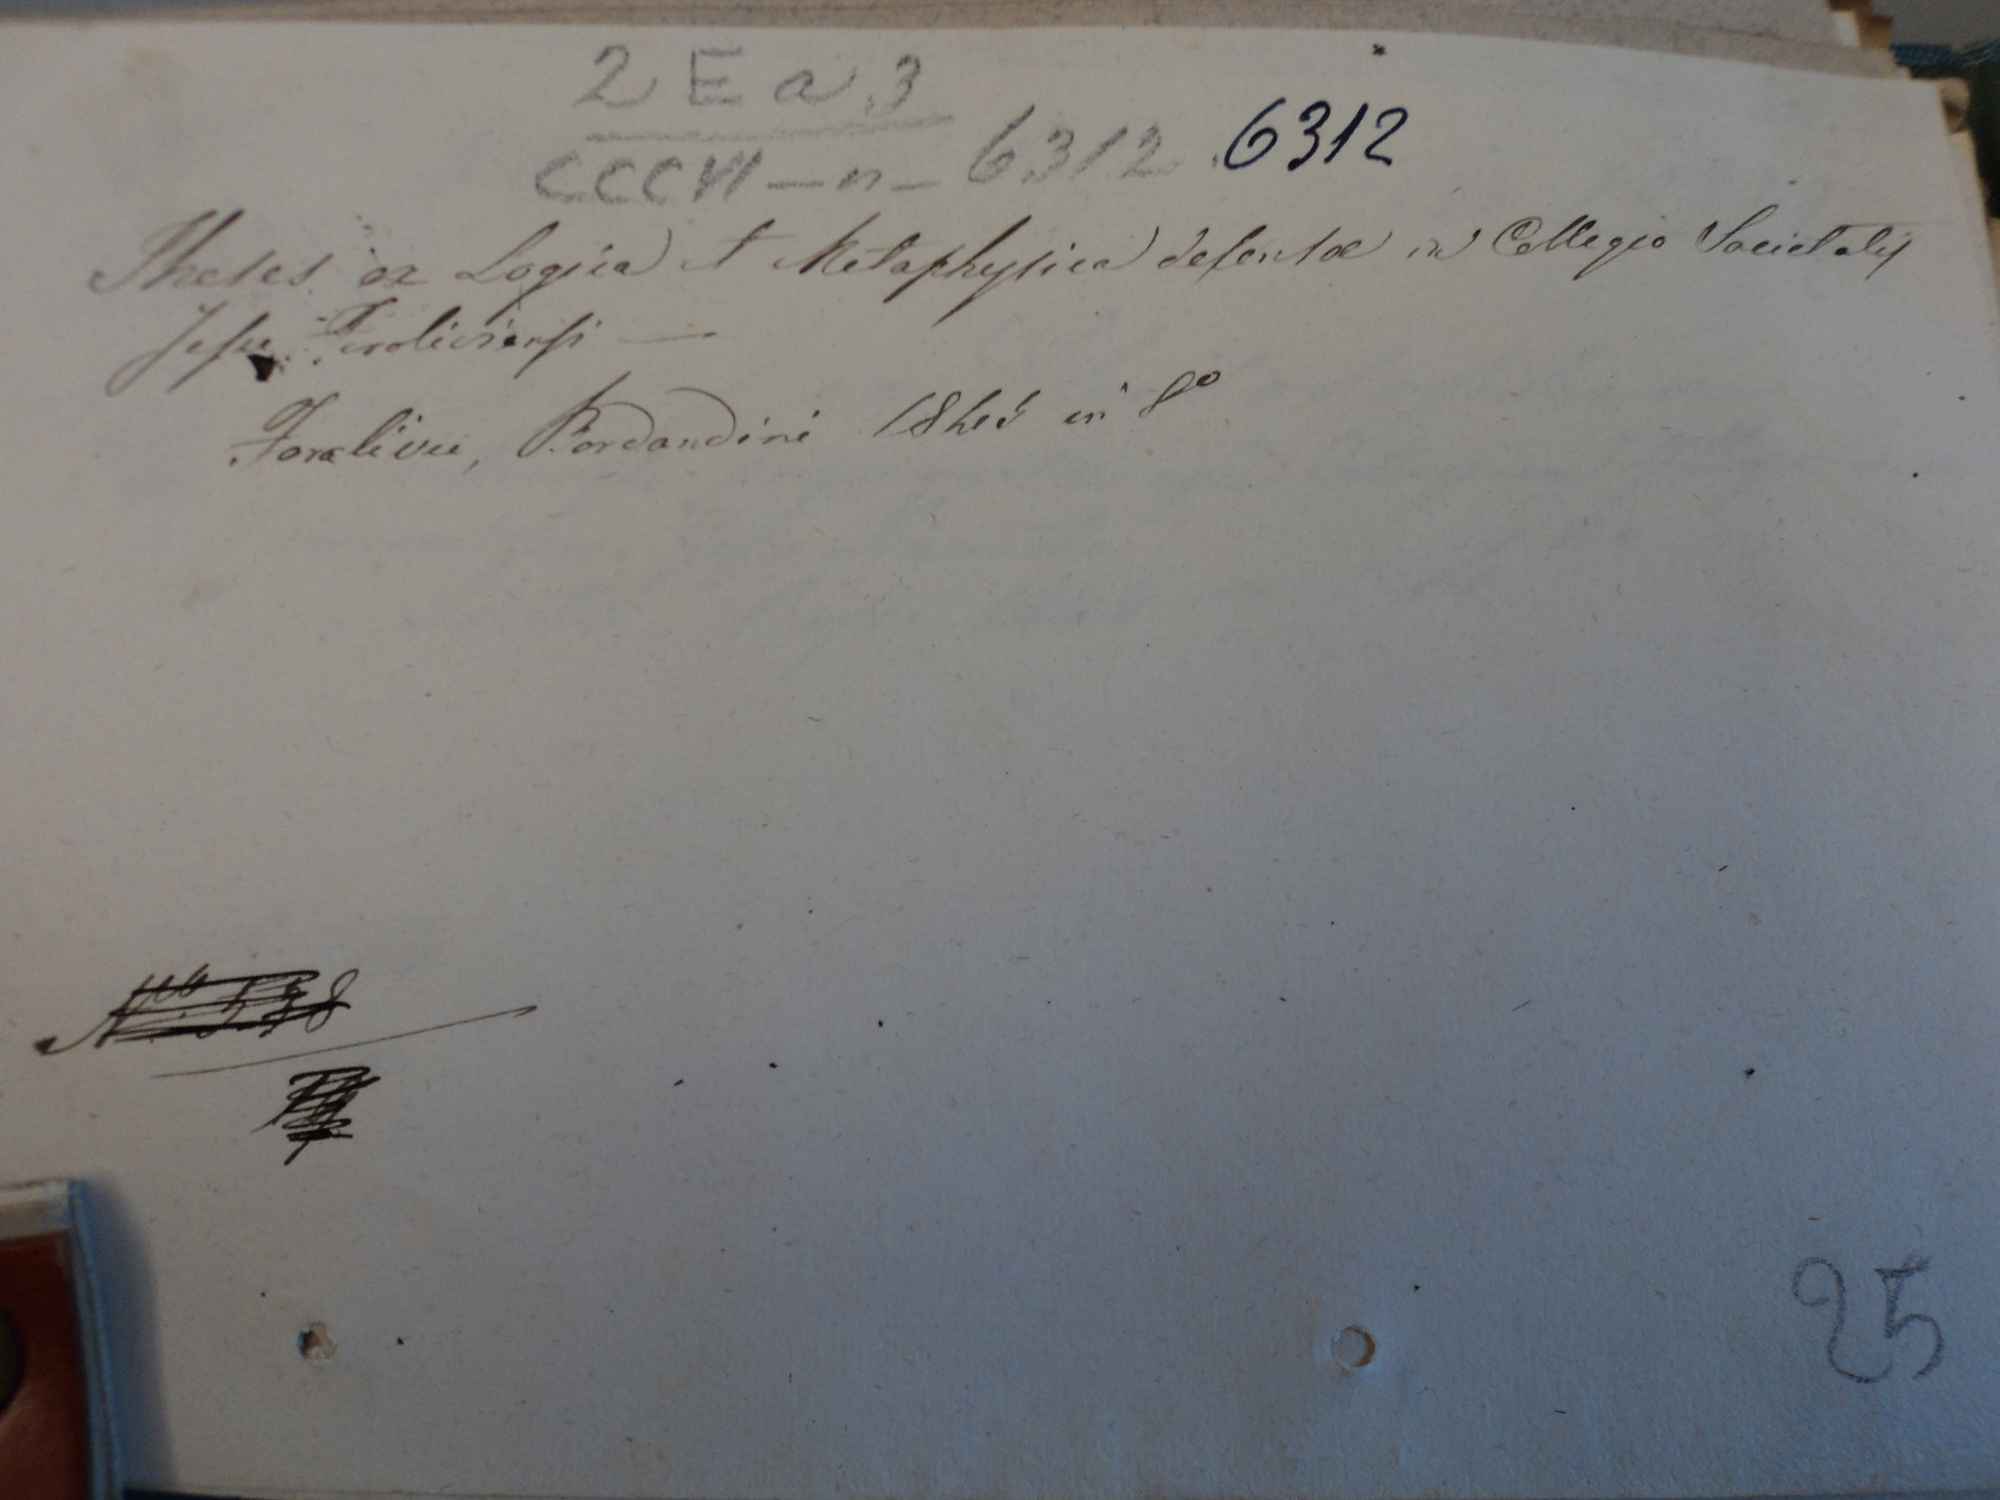 2 E a 3
CCCVI — n — 6312 6312
Theses ex Logica et Metaphysica defensae in Collegio Societatis
Jesu Foroliviensi —
Forolivii, Bordandini in 8°
25